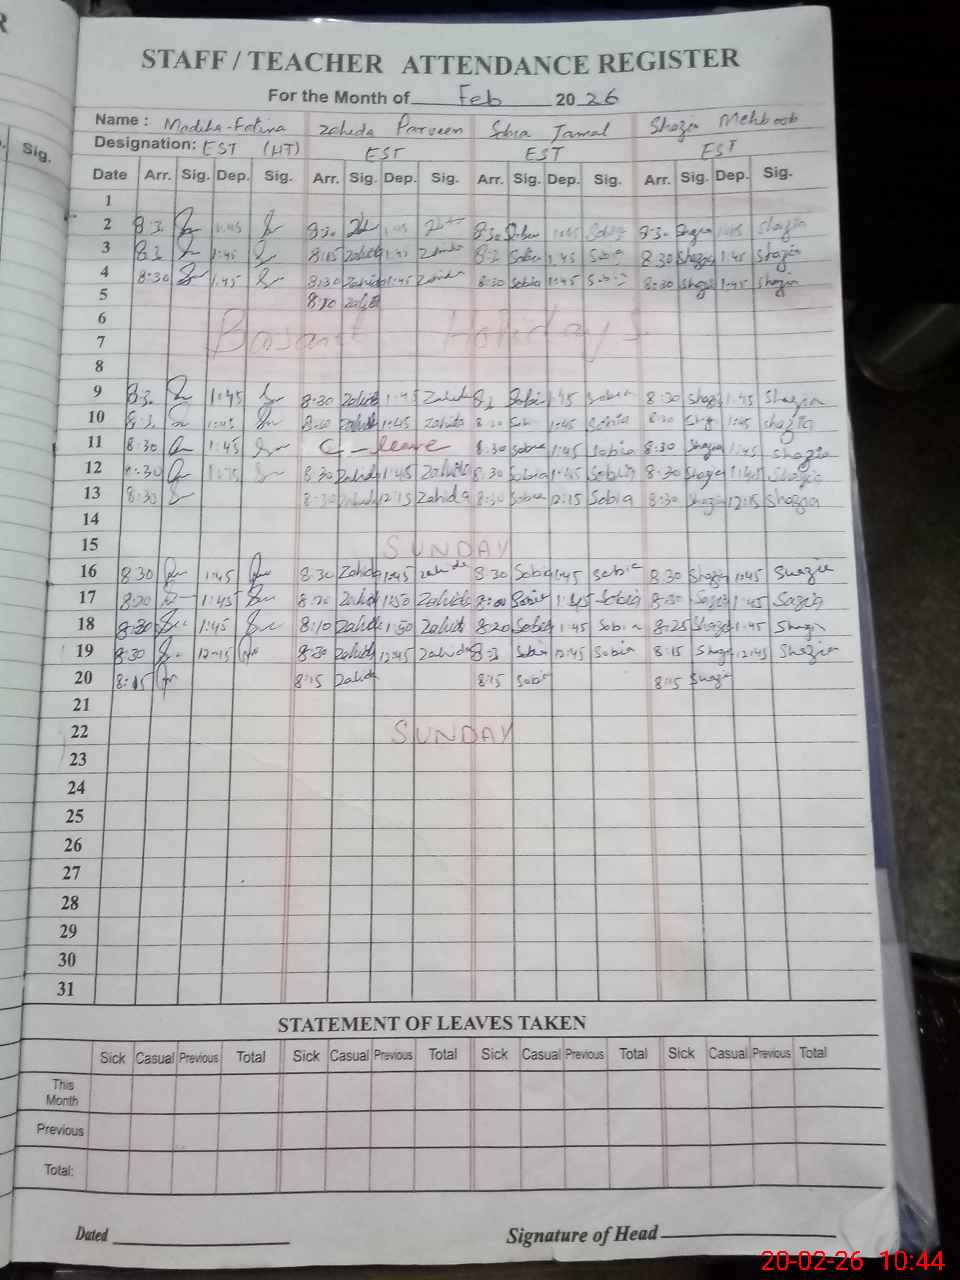 STAFF / TEACHER ATTENDANCE REGISTER
For the Month of Feb 2026
Name : Madiha-Fatima Zahida Parveen Sobia Jamal Shazia Mehboob
Designation: EST (HT) EST EST EST
Sig.
Date Arr. Sig. Dep. Sig. Arr. Sig. Dep. Sig. Arr. Sig. Dep. Sig. Arr. Sig. Dep. Sig.
1
2 8:3 1:45 8:30 1:45 8:30 1:45 Sobia 8:30 Shazia 1:45 Shazia
3 8:3 1:45 8:15 Zahida 1:45 Zahida 8:3 Sobia 1:45 Sobia 8:30 Shazia 1:45 Shazia
4 8:30 1:45 8:30 Zahida 1:45 Zahida 8:30 Sobia 1:45 Sobia 8:30 Shazia 1:45 Shazia
5 8:30 Zahida
6 Basant Holidays
7
8
9 8:3 1:45 8:30 Zahida 1:45 Zahida 8:3 Sobia 1:45 Sobia 8:30 Shazia 1:45 Shazia
10 8:3 1:45 8:30 Zahida 1:45 Zahida 8:30 Sobia 1:45 Sobia 8:30 1:45 Shazia
11 8:30 1:45 C-leave 8:30 Sobia 1:45 Sobia 8:30 Shazia 1:45 Shazia
12 8:30 1:45 8:30 Zahida 1:45 Zahida 8:30 Sobia 1:45 Sobia 8:30 Shazia 1:45 Shazia
13 8:30 8:30 Zahida 12:15 Zahida 8:30 Sobia 12:15 Sobia 8:30 Shazia 12:15 Shazia
14
15 SUNDAY
16 8:30 1:45 8:30 Zahida 1:45 Zahida 8:30 Sobia 1:45 Sobia 8:30 Shazia 1:45 Shazia
17 8:20 1:45 8:20 Zahida 1:50 Zahida Sobia 1:45 Sobia 8:30 1:45 Sazia
18 8:30 1:45 8:10 Zahida 1:50 Zahida 8:20 Sobia 1:45 Sobia 8:25 Shazia 1:45 Shazia
19 8:30 12:45 8:30 Zahida 12:45 Zahida 8:3 Sobia 12:45 Sobia 8:15 Shazia 12:45 Shazia
20 8:15 8:15 Zahida 8:15 Sobia 8:15 Shazia
21
22 SUNDAY
23
24
25
26
27
28
29
30
31
STATEMENT OF LEAVES TAKEN
Sick Casual Previous Total Sick Casual Previous Total Sick Casual Previous Total Sick Casual Previous Total
This
Month
Previous
Total:
Dated Signature of Head
20-02-26 10:44